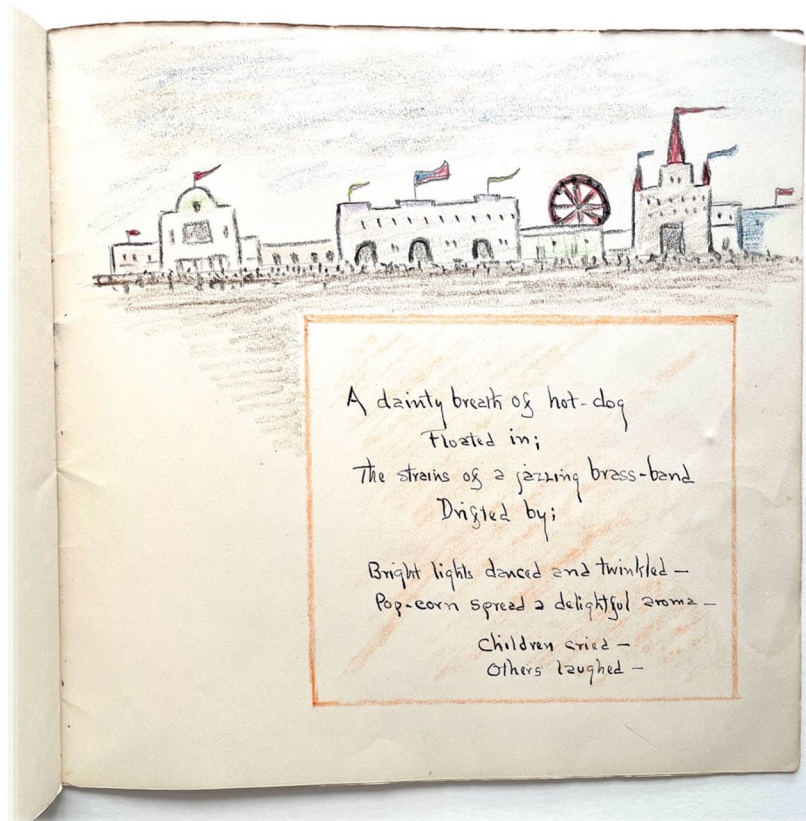 A dainty breath of hot-dog
Floated in;
The strains of a jazzing brass-band
Drifted by;
Bright lights danced and twinkled –
Pop-corn spread a delightful aroma –
Children cried –
Others laughed –